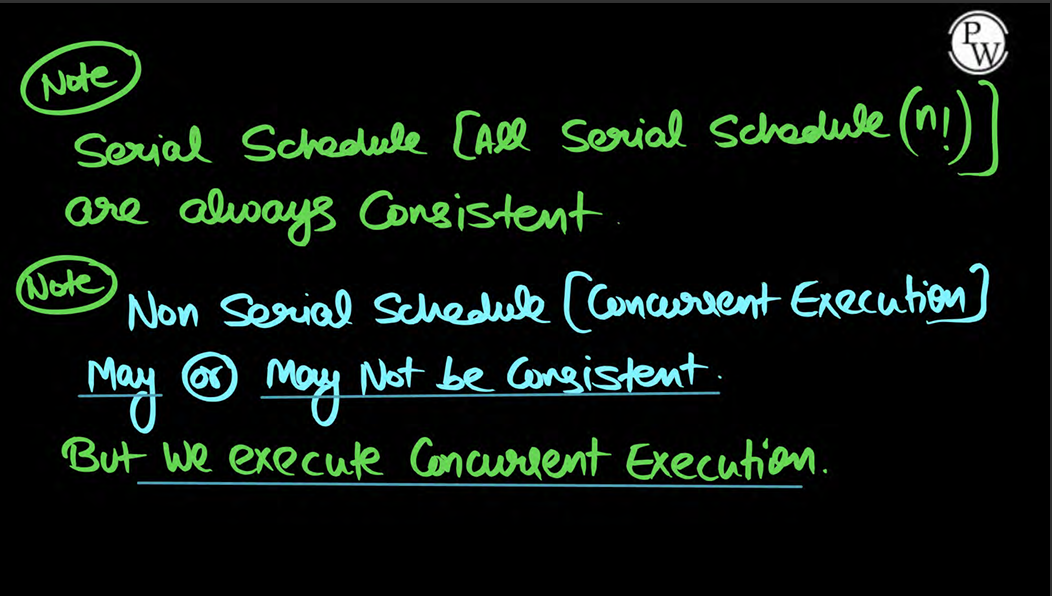 PW
Note
Serial Schedule [All Serial Schedule (n!)]
are always Consistent.
Note
Non Serial Schedule [Concurrent Execution]
May or May Not be Consistent.
But We execute Concurrent Execution.